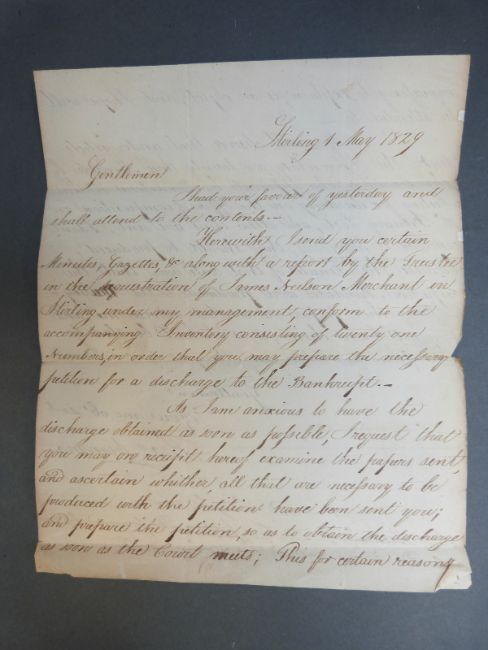 Stirling 1 May 1829
Gentlemen
I had your favour of yesterday and
shall attend to the contents.—
Herewith I send you certain
Minutes, Gazettes, &c along with a report by the Trustee
in the sequestration of James Neilson Merchant in
Stirling under my management, conform to the
accompanying Inventory consisting of twenty one
Numbers, in order that you may prepare the necessary
petition for a discharge to the Bankrupt.—
As I am anxious to have the
discharge obtained as soon as possible, I request that
you may on receipt hereof examine the papers sent,
and ascertain whether all that are necessary to be
produced with the petition have been sent you;
and prepare the petition, so as to obtain the discharge
as soon as the Court meets; This for certain reasons